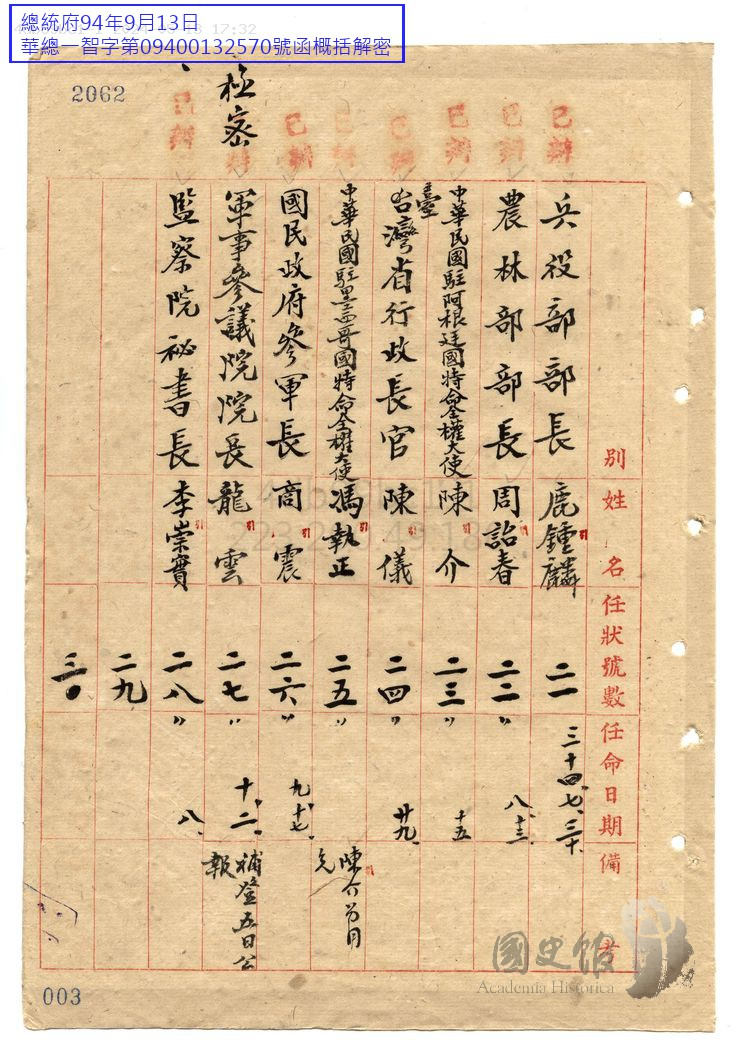 總統府94年9月13日
華總一智字第09400132570號函概括解密
2062
極密
別
姓名
任狀號數
任命日期
備考
已辦
兵役部部長
鹿鍾麟
二一
三十四、七、三十、
已辦
農林部部長
周詒春
二二
〃
八、十三、
已辦
中華民國駐阿根廷國特命全權大使
陳介
二三
〃
十五
已辦
臺
台灣省行政長官
陳儀
二四
〃
廿九、
已辦
中華民國駐墨西哥國特命全權大使
馮執正
二五
〃
陳介
已辦
國民政府參軍長
商震
二六
〃
九、十七、
已辦
軍事參議院院長
龍雲
二七
〃
十、二、
補登五日公報
已辦
監察院祕書長
李崇實
二八
〃
八、
二九
三〇
003
國史館
Academia Historica